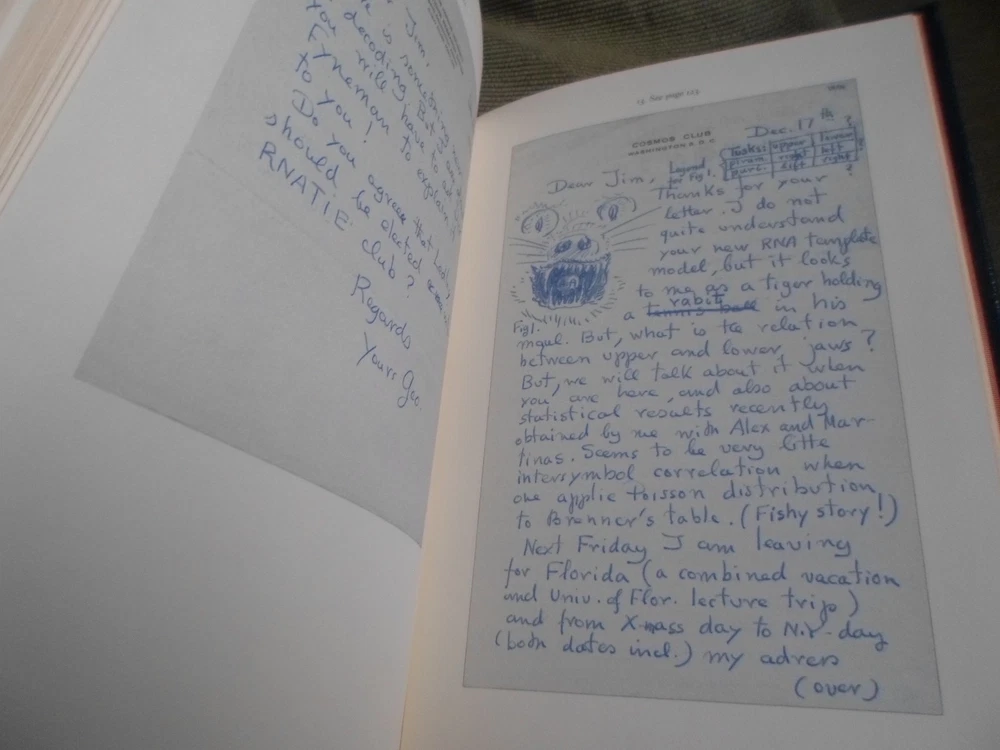 Jim,
is something
decoding. But
you will have to ask
Fyneman to explain it
to you!
Do you agree that
should be elected
RNATIE club?
Regards
Yours Geo
COSMOS CLUB
WASHINGTON 5, D.C.
Dec. 17th
Legend
for Fig 1.
Tuskss upper lower ?
right left
left right ?
Dear Jim,
Thanks for your
letter. I do not
quite understand
your new RNA template
model, but it looks
to me as a tiger holding
a tennis ball rabit in his
Fig 1.
mqul. But, what is the relation
between upper and lower jaws?
But, we will talk about it when
you are here, and also about
statistical results recently
obtained by me with Alex and Mar-
tinas. Seems to be very litte
intersymbol correlation when
one applie Poisson distribution
to Brenner's table. (Fishy story!)
Next Friday I am leaving
for Florida (a combined vacation
and Univ. of Flor. lecture trip)
and from X-mass day to N.Y-day
(both dates incl.) my adress
(over)